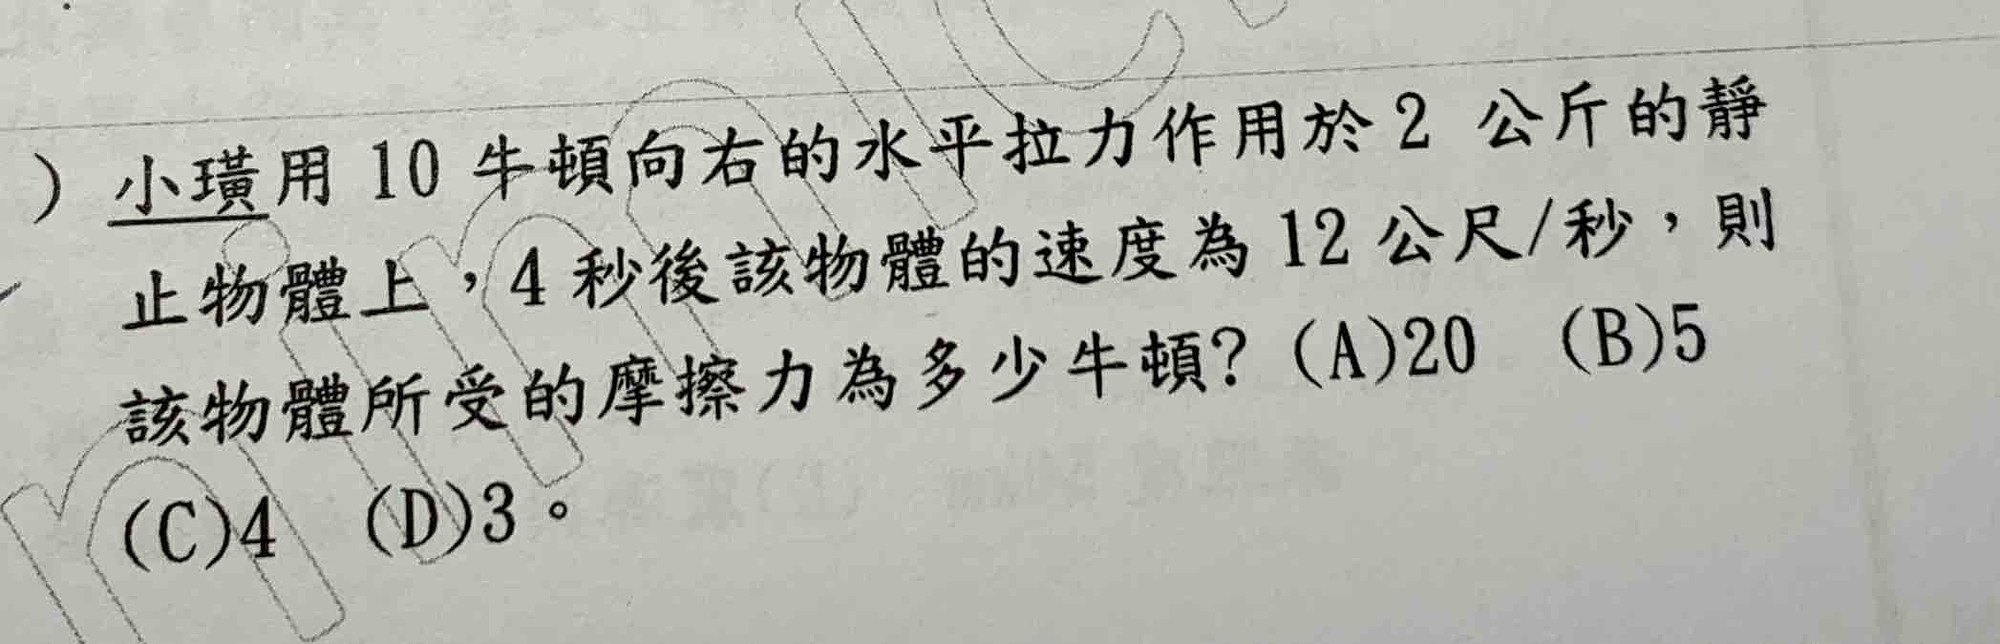 ）小璜用 10 牛頓向右的水平拉力作用於 2 公斤的靜
止物體上，4 秒後該物體的速度為 12 公尺/秒，則
該物體所受的摩擦力為多少牛頓？(A)20 (B)5
(C)4 (D)3。